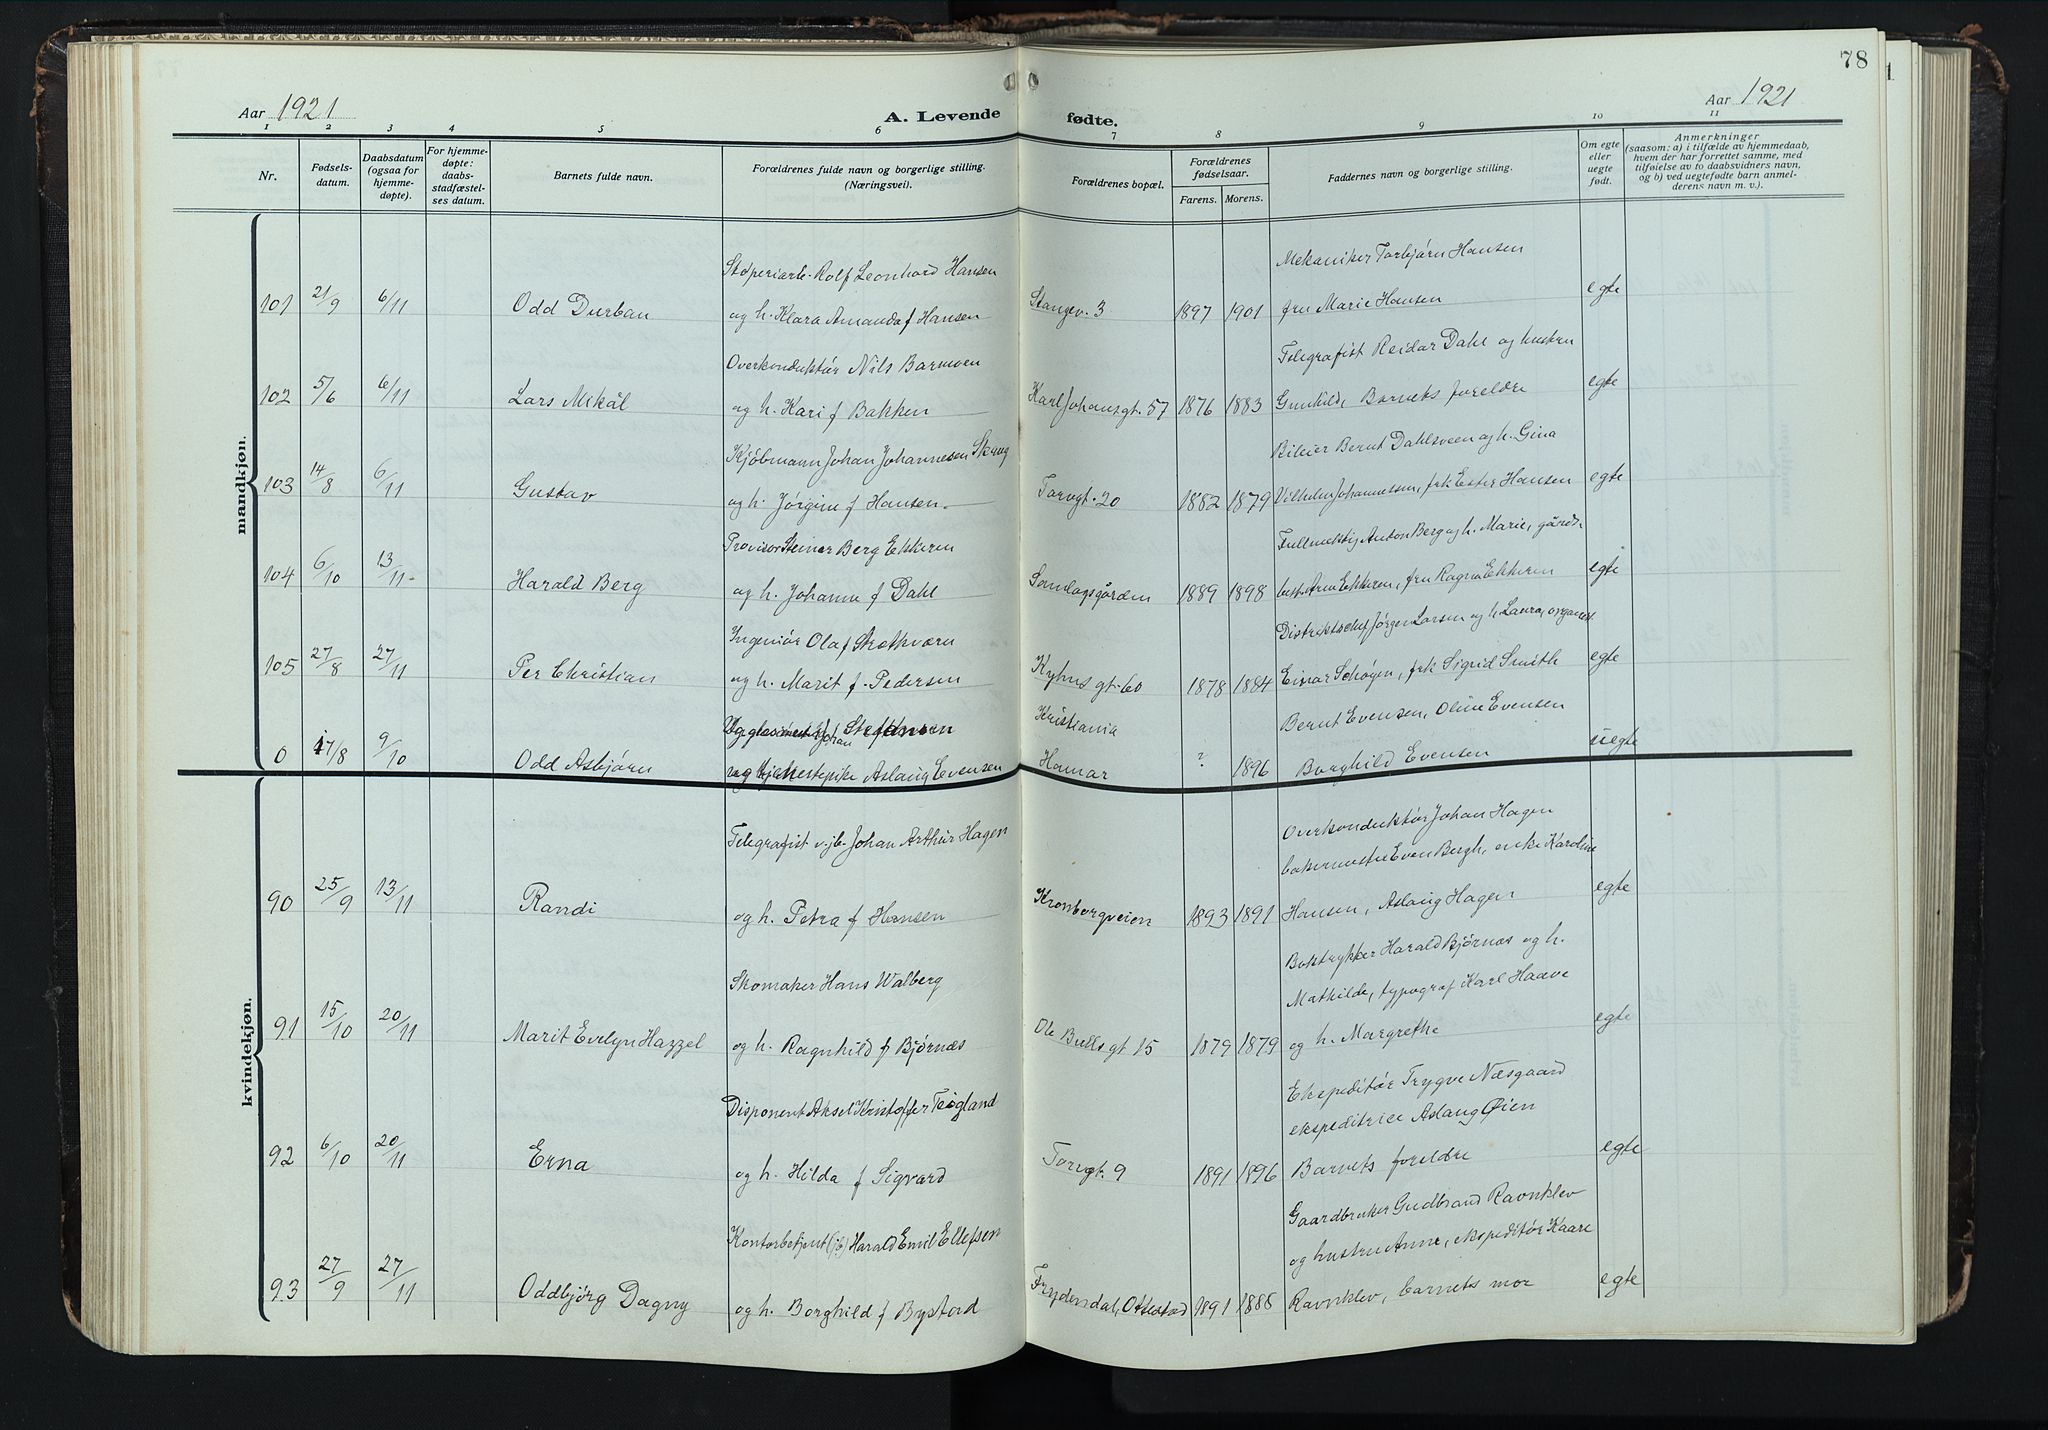 78
Aar 1921
A. Levende fødte.
Aar 1921
1 2 3 4 5 6 7 8 9 10 11
Nr.
Fødsels-
datum.
Daabsdatum
(ogsaa for
hjemme-
døpte).
For hjemme-
døpte:
daabs-
stadfæstel-
ses datum.
Barnets fulde navn.
Forældrenes fulde navn og borgerlige stilling.
(Næringsvei).
Forældrenes bopæl.
Forældrenes
fødselsaar.
Farens. Morens.
Faddernes navn og borgerlige stilling.
Om egte
eller
uegte
født.
Anmerkninger
(saasom: a) i tilfælde av hjemmedaab,
hvem der har forrettet samme, med
tilføielse av to daabsvidners navn,
og b) ved uegtefødte barn anmel-
derens navn m. v.).
mandkjøn.
Støperiarb. Rolf Leonhard Hansen
Mekaniker Torbjørn Hansen
101 21/9 6/11 Odd Durban og h. Klara Amanda f Hansen Stangev. 3 1897 1901 fru Marie Hansen egte
Overkonduktør Nils Barmoen
Telegrafist Reidar Dahl og hustru
102 5/6 6/11 Lars Mikal og h. Kari f Bakken Karl Johansgt. 57 1876 1883 Gunhild, Barnets foreldre egte
Kjøbmann Johan Johannesen Skaug
Bileier Bernt Dahlsveen og h. Gina
103 14/8 6/11 Gustav og h. Jørgine f Hansen Torvgt. 20 1882 1879 Vilhelm Johannessen, frk Ester Hansen egte
Provisor Steinar Berg Ekkeren
Fullmektig Anton Berg og h. Marie, gårdb.
104 6/10 13/11 Harald Berg og h. Johanne f Dahl Samlagsgården 1889 1898 best. Arne Ekkeren, fru Ragna Ekkeren egte
Ingeniør Olaf Strethværn
Distriktschef Jørgen Larsen og h. Laura, organist.
105 27/8 27/11 Per Christian og h. Marit f. Pedersen Kyhns gt. 60 1878 1884 Einar Schøyen, frk Sigrid Smith egte
Johan Steffensen
Kristiania
Bernt Evensen, Oline Evensen
0 17/8 9/10 Odd Asbjørn Aslaug Evensen Hamar ? 1896 Borghild Evensen uegte
kvindekjøn.
Telegrafist v. jb. Johan Arthur Hagen
Overkonduktør Johan Hagen
bakermester Even Bergh, enke Karoline
90 25/9 13/11 Randi og h. Petra f Hansen Kronborgveien 1893 1891 Hansen, Aslaug Hagen egte
Skomaker Hans Walberg
Boktrykker Harald Bjørnæs og h.
Mathilde, typograf Karl Haave
91 15/10 20/11 Marit Evelyn Hazzel og h. Ragnhild f Bjørnæs Ole Bulls gt 15 1879 1879 og h. Margrethe egte
Disponent Aksel Kristoffer Teigland
Ekspeditør Trygve Næsgaard
ekspeditrice Aslaug Øien
92 6/10 20/11 Erna og h. Hilda f Sigvard Torvgt. 9 1891 1896 Barnets foreldre egte
Kontorbetjent (jb) Harald Emil Ellefsen
Gaardbruker Gudbrand Ravnklev
og hustru Anne, ekspeditør Kaare
93 27/9 27/11 Oddbjørg Dagny og h. Borghild f Bystord Frydendal, Ottestad 1891 1886 Ravnklev, barnets mor egte